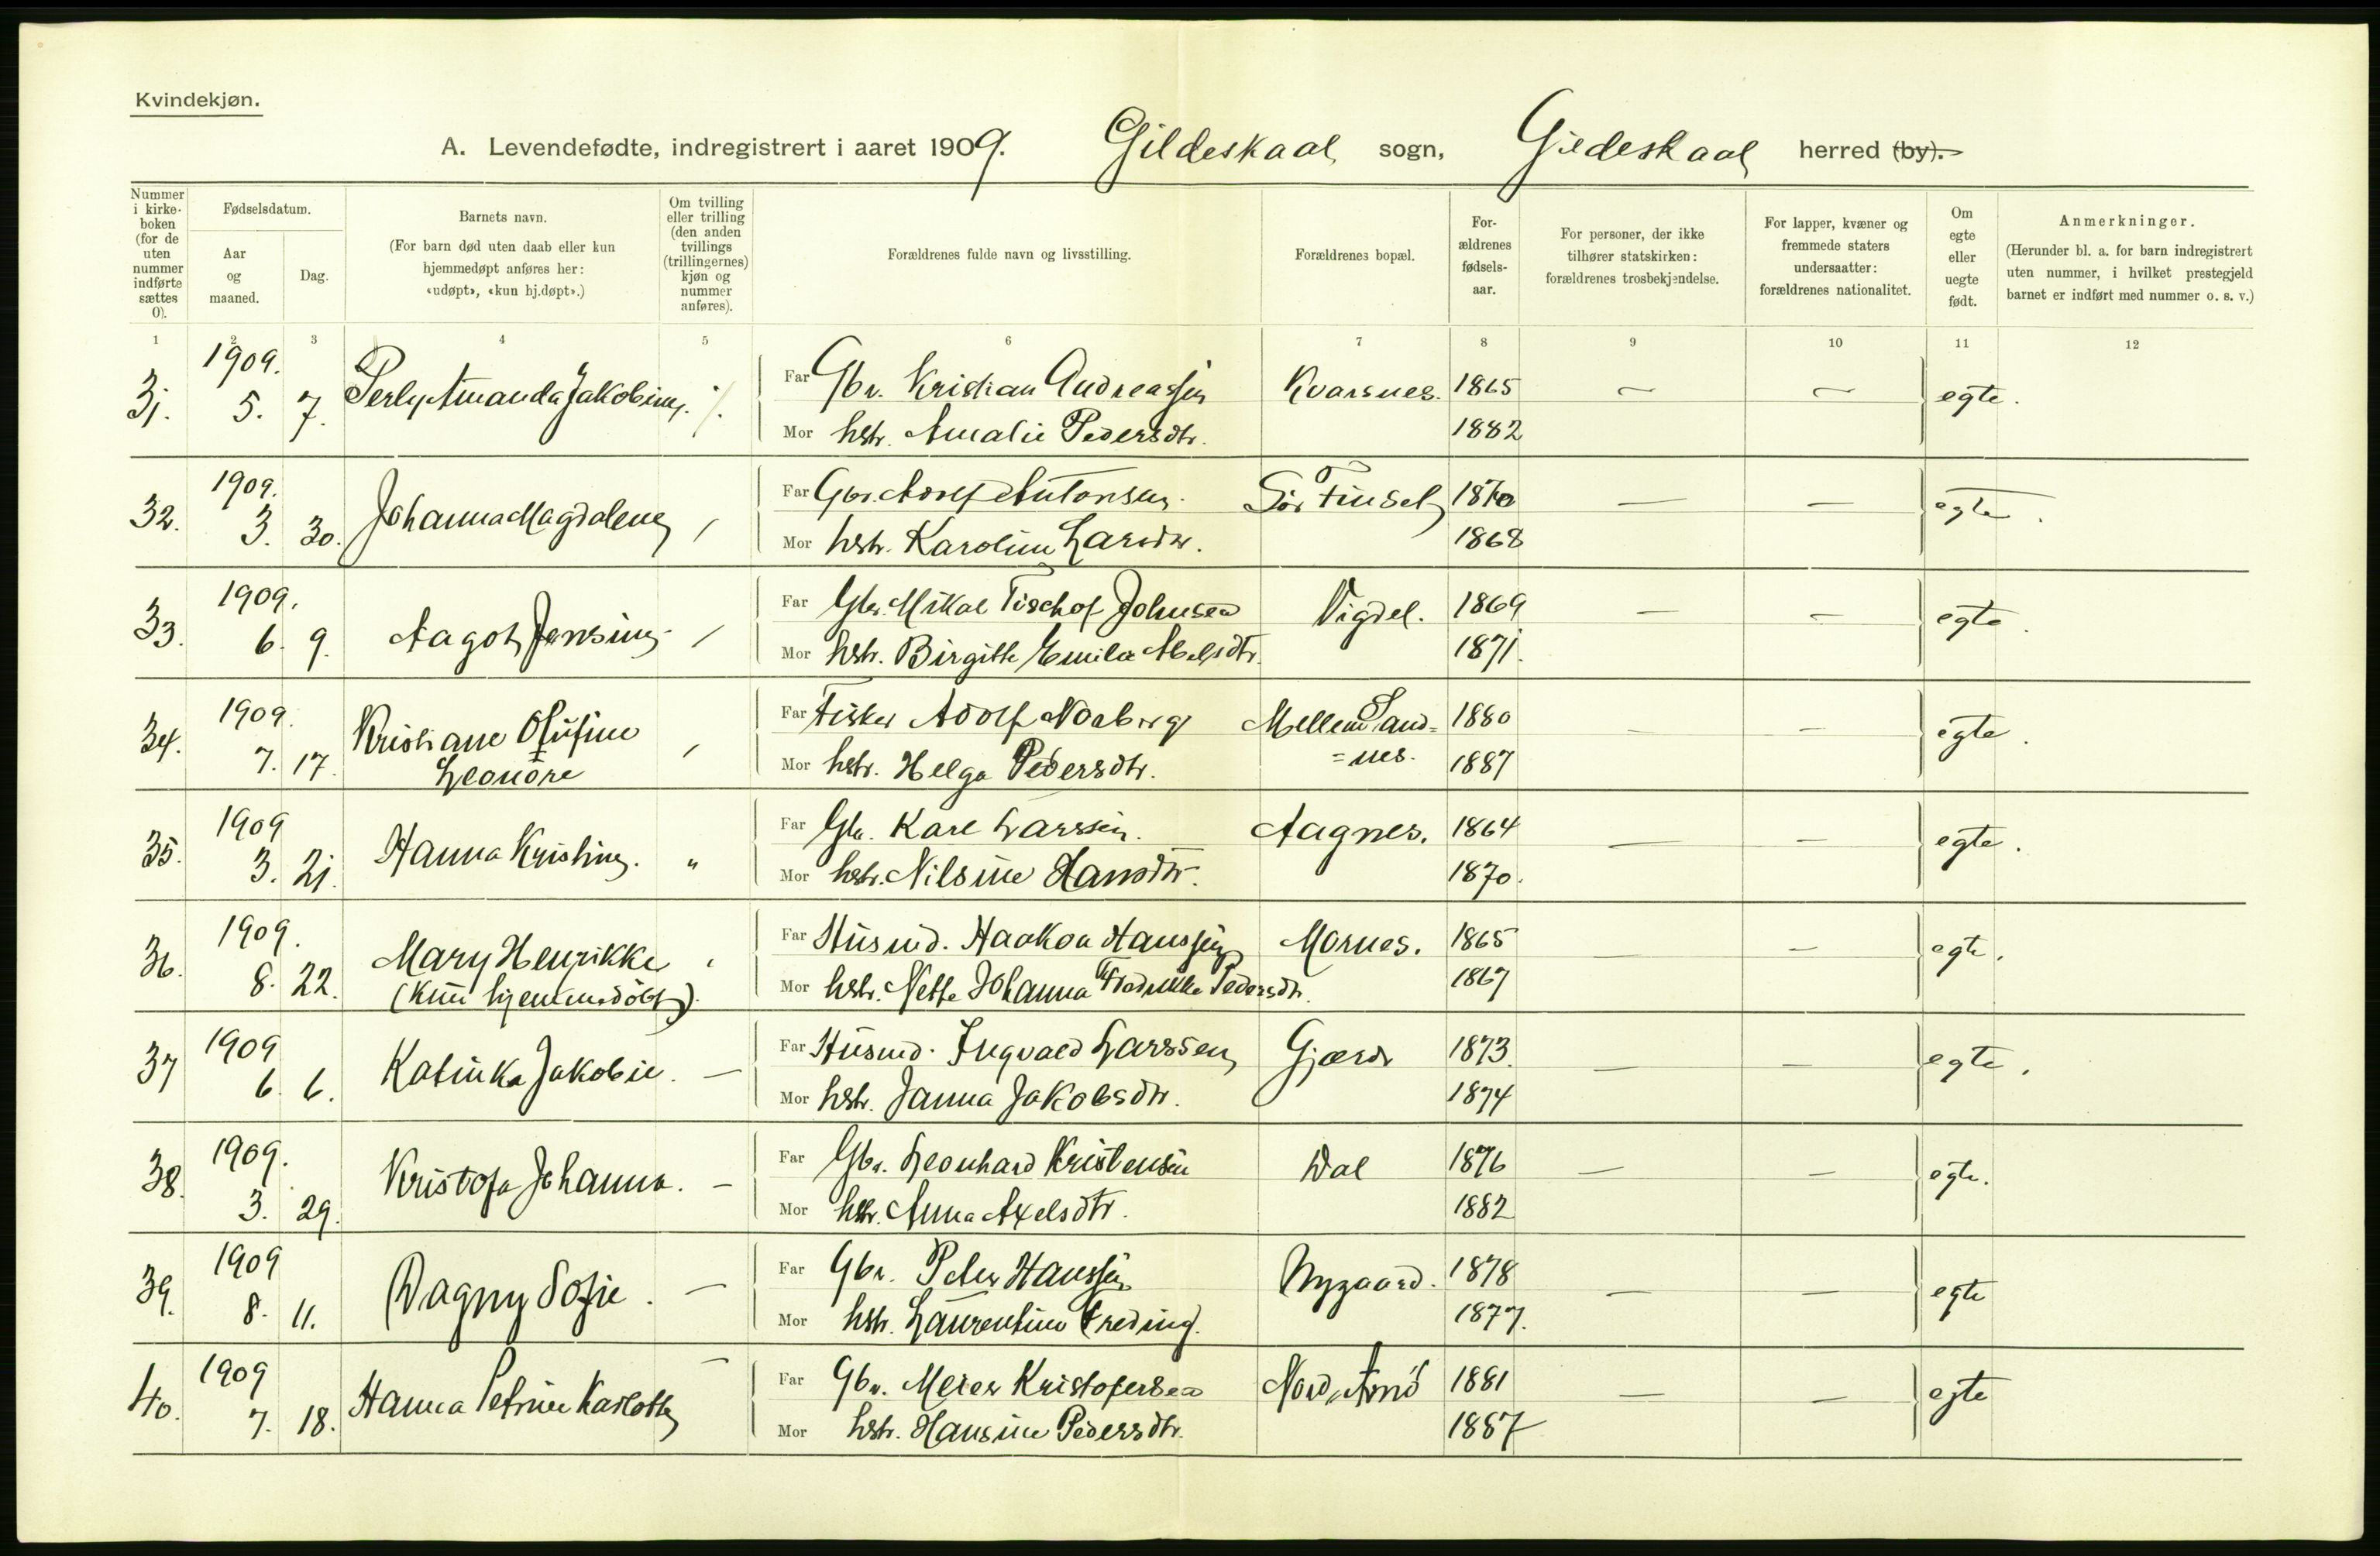 Kvindekjøn.
A. Levendefødte, indregistrert i aaret 1909. Gildeskaal sogn, Gildeskaal herred (by).
Nummer i kirke-boken (for de uten nummer indførte sættes 0).
Fødselsdatum.
Aar og maaned.
Dag.
Barnets navn.
(For barn død uten daab eller kun hjemmedøpt anføres her: «udøpt», «kun hj.døpt».)
Om tvilling eller trilling (den anden tvillings (trillingernes) kjøn og nummer anføres).
Forældrenes fulde navn og livsstilling.
Forældrenes bopæl.
For-ældrenes fødsels-aar.
For personer, der ikke tilhører statskirken: forældrenes trosbekjendelse.
For lapper, kvæner og fremmede staters undersaatter: forældrenes nationalitet.
Om egte eller uegte født.
Anmerkninger.
(Herunder bl. a. for barn indregistrert uten nummer, i hvilket prestegjeld barnet er indført med nummer o. s. v.)
1 2 3 4 5 6 7 8 9 10 11 12
31. 1909. 5. 7. Perly Amanda Jakobine ./. Far Gbr. Kristian Andreassen Kvarsnes. 1865 — — egte.
Mor hstr. Amalie Pedersdtr. 1882
32. 1909. 3. 30. Johanna Magdalene / Far Gbr. Adolf Antonsen. Sör 1870 — — egte.
Mor hstr. Karoline Larsdtr. 1868
33. 1909. 6. 9. Aagot Jensine / Far Gbr. Mikal Johnsen Vigdel. 1869 — — egte.
Mor hstr. Birgitte Emilie Abelsdtr. 1871.
34. 1909. 7. 17. Kristiane Olufine Leonore / Far Fisker Adolf Norberg Mellem Sand= 1880 — — egte.
Mor hstr. Helga Pedersdtr. =nes. 1887
35. 1909 3. 21. Hanna Kristine. " Far Gbr. Karl Larssen. Aagnes. 1864 — — egte.
Mor hstr. Nilsine Hansdtr. 1870.
36. 1909. 8. 22. Mary Henrikke Far Husmd. Haakon Hanssen Mornes. 1865 — egte.
(kun hjemmedöbt). Mor hstr. Nette Johanna Fredrikke Pedersdtr. 1867
37 1909 6. 6. Katinka Jakobie. — Far Husmd. Ingvald Larssen Gjærde 1873. — — egte.
Mor hstr. Janna Jakobsdtr. 1874
38. 1909. 3. 29. Kristofa Johanna. — Far Gbr. Leonhard Kristensen Dal 1876 — — egte.
Mor hstr. Anna Axelsdtr. 1882
39. 1909 8. 11. Dagny Sofie. — Far Gbr. Peter Hanssen Nygaard. 1878 — — egte
Mor hstr. Laurentine 1877.
40. 1909 7. 18. Hanna Petrine Karlotte — Far Gbr. Meier Kristofersen Nord Arnö 1881 — — egte
Mor hstr. Hansine Pedersdtr. 1887